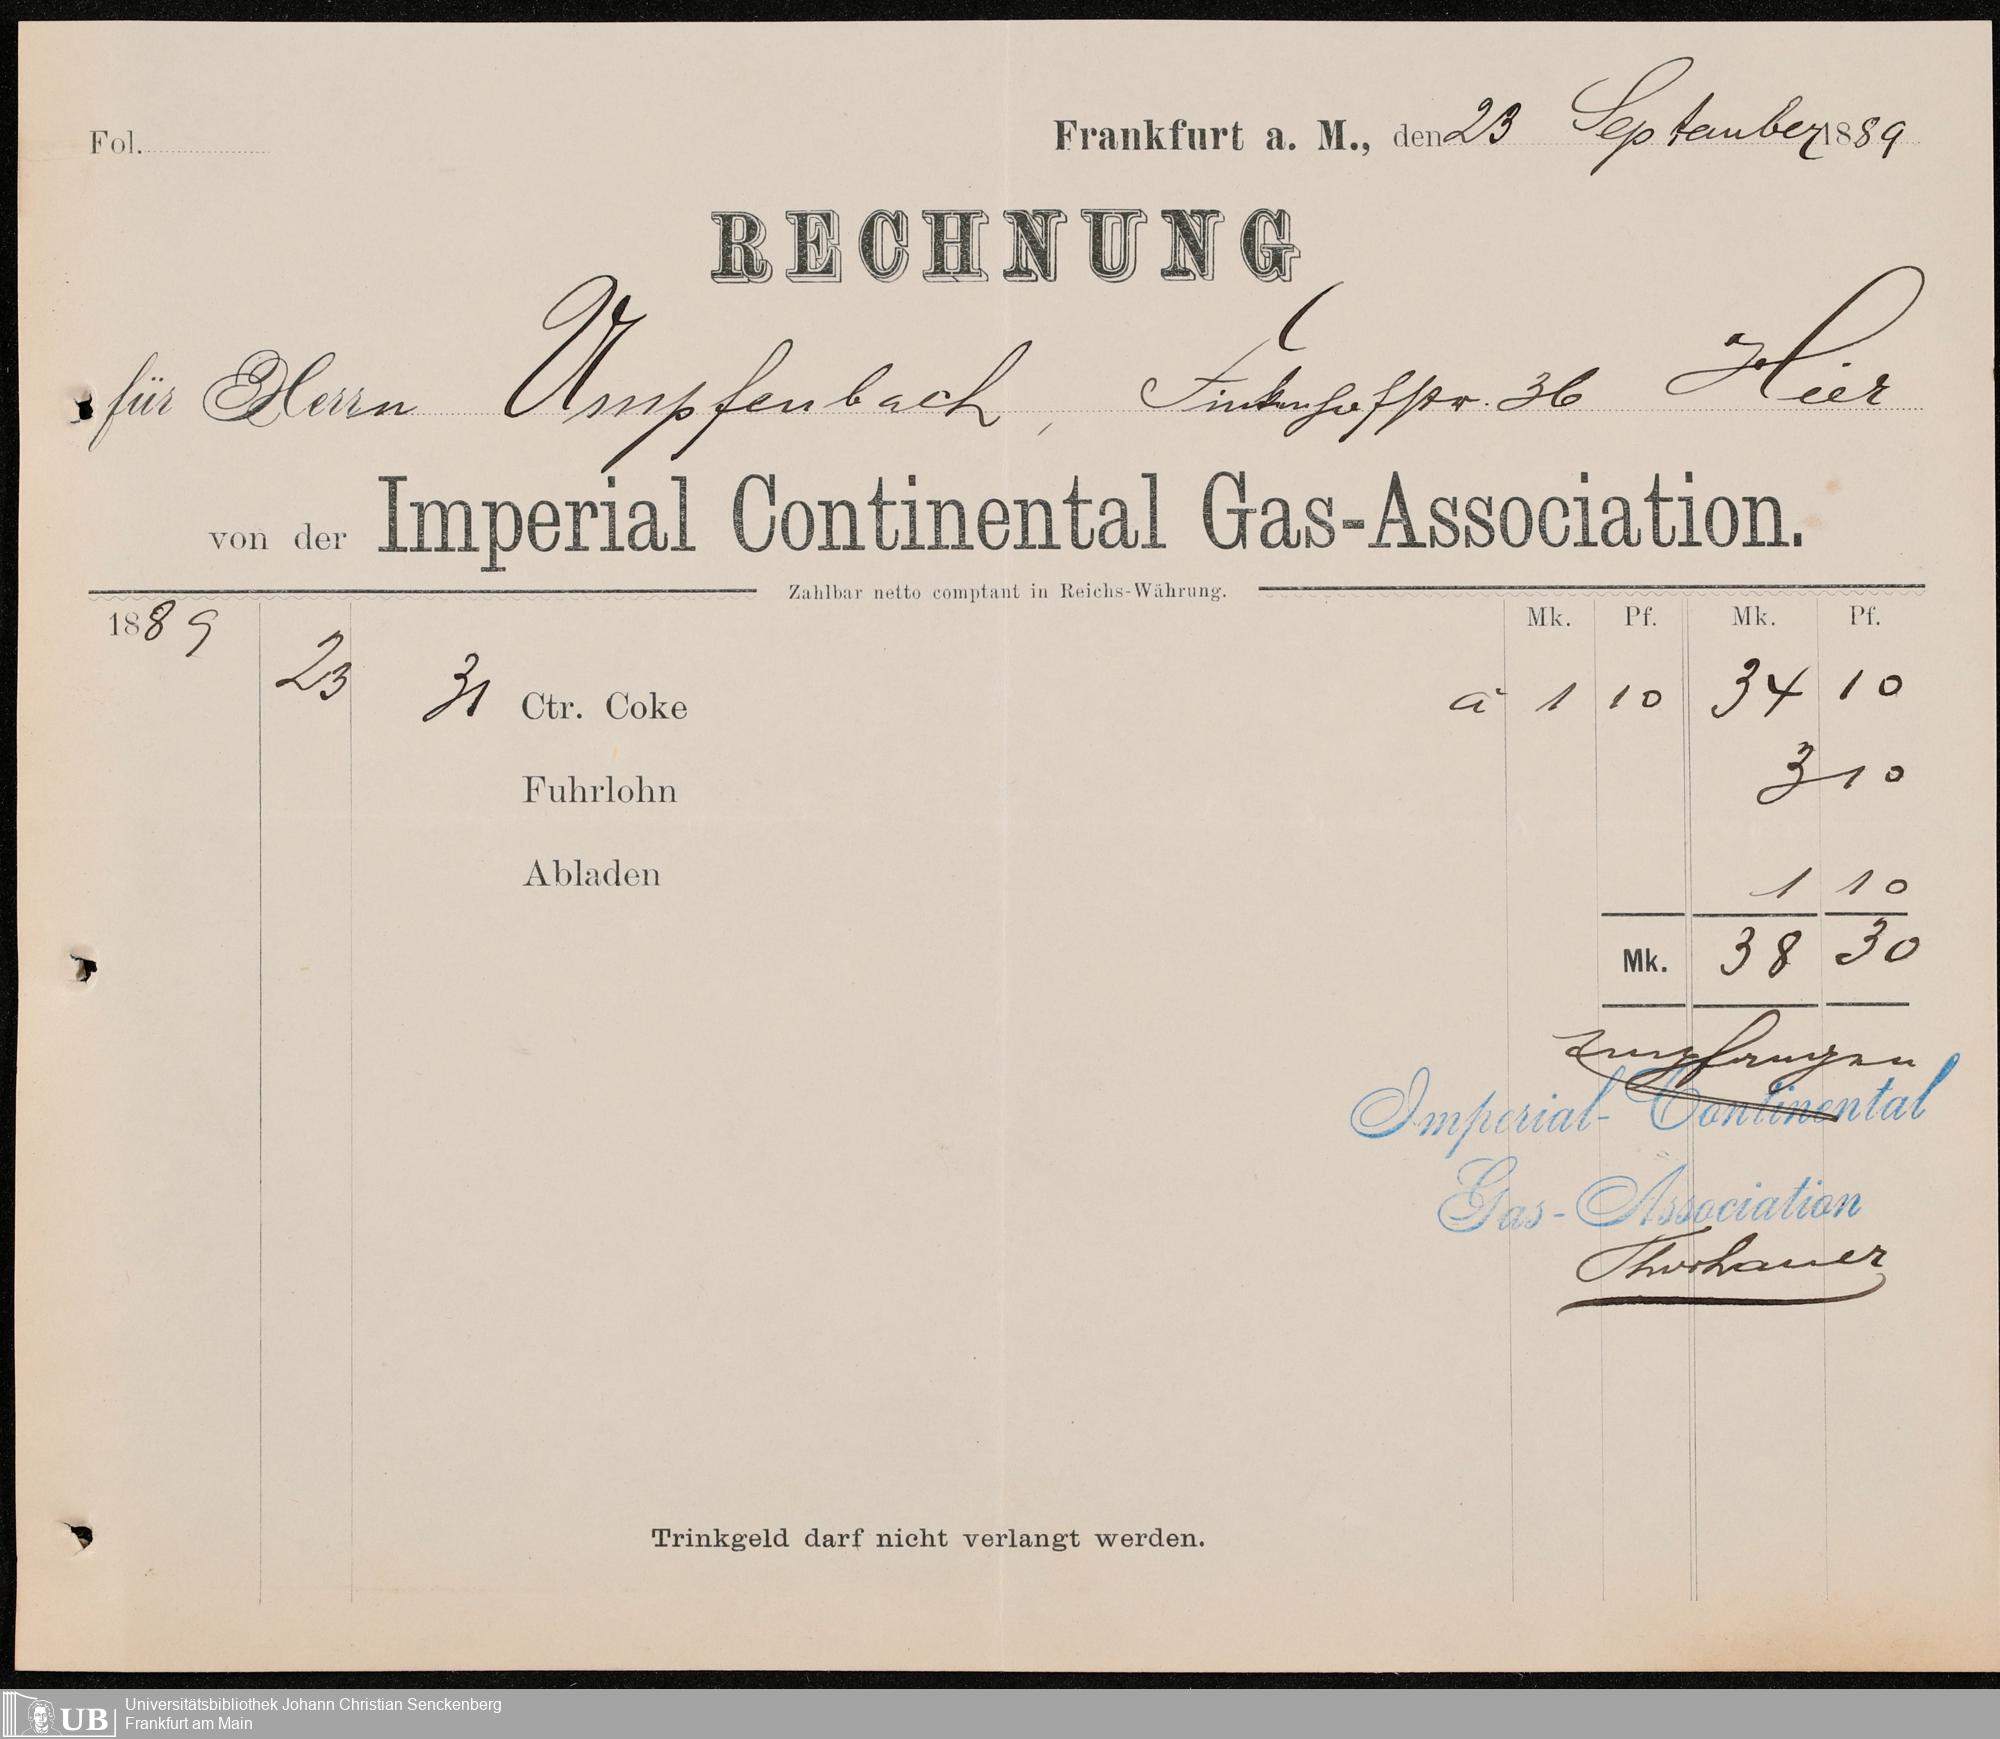 Fol.
Frankfurt a. M., den 23 September 1889
RECHNUNG
für Herrn Umpfenbach, Finkenhofstr. 36 Hier
von der Imperial Continental Gas-Association.
Zahlbar netto comptant in Reichs-Währung.
1889 Mk. Pf. Mk. Pf.
23 31 Ctr. Coke à 1 10 34 10
Fuhrlohn 3 10
Abladen 1 10
Mk. 38 30
empfangen
Imperial-Continental
Gas-Association
Trinkgeld darf nicht verlangt werden.
UB
Universitätsbibliothek Johann Christian Senckenberg
Frankfurt am Main